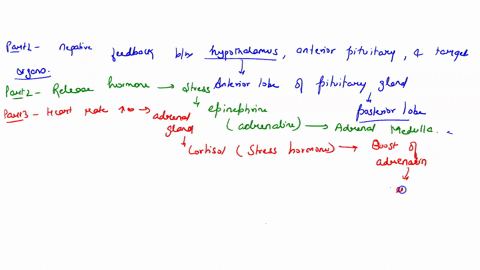 Part1- negative feedback b/w hypothalamus, anterior pituitary, & target
organs.
Part2- Release hormone → stress Anterior lobe of pituitary gland
→ epinephrine posterior lobe
(adrenaline) → Adrenal Medulla.
Part3- Heart rate → adrenal
gland
Cortisol (stress hormone) → Boost of
adrenalin